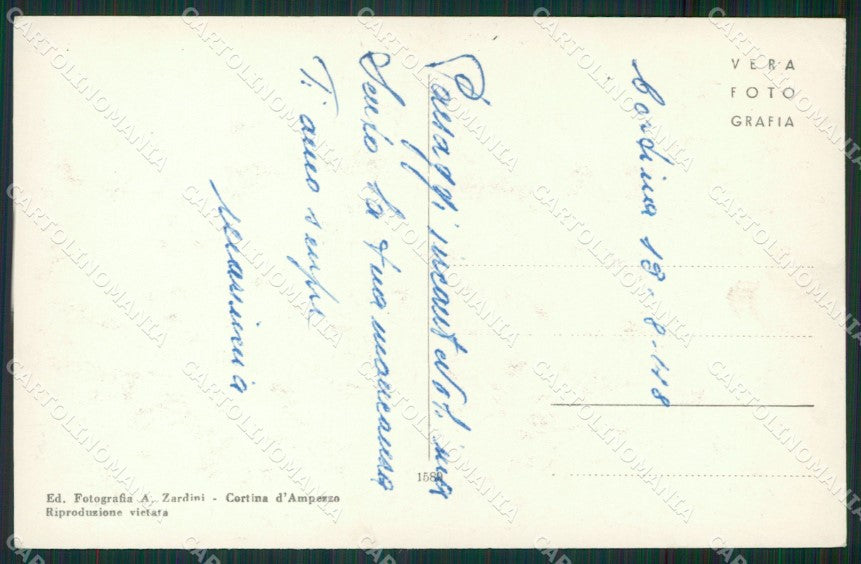 VERA
FOTO
GRAFIA
Cortina 18-8-48
Paesaggi incantevoli. ma
Sento la tua mancanza
Ti amo sempre
1589
Ed. Fotografia A. Zardini - Cortina d'Ampezzo
Riproduzione vietata
CARTOLINOMANIA